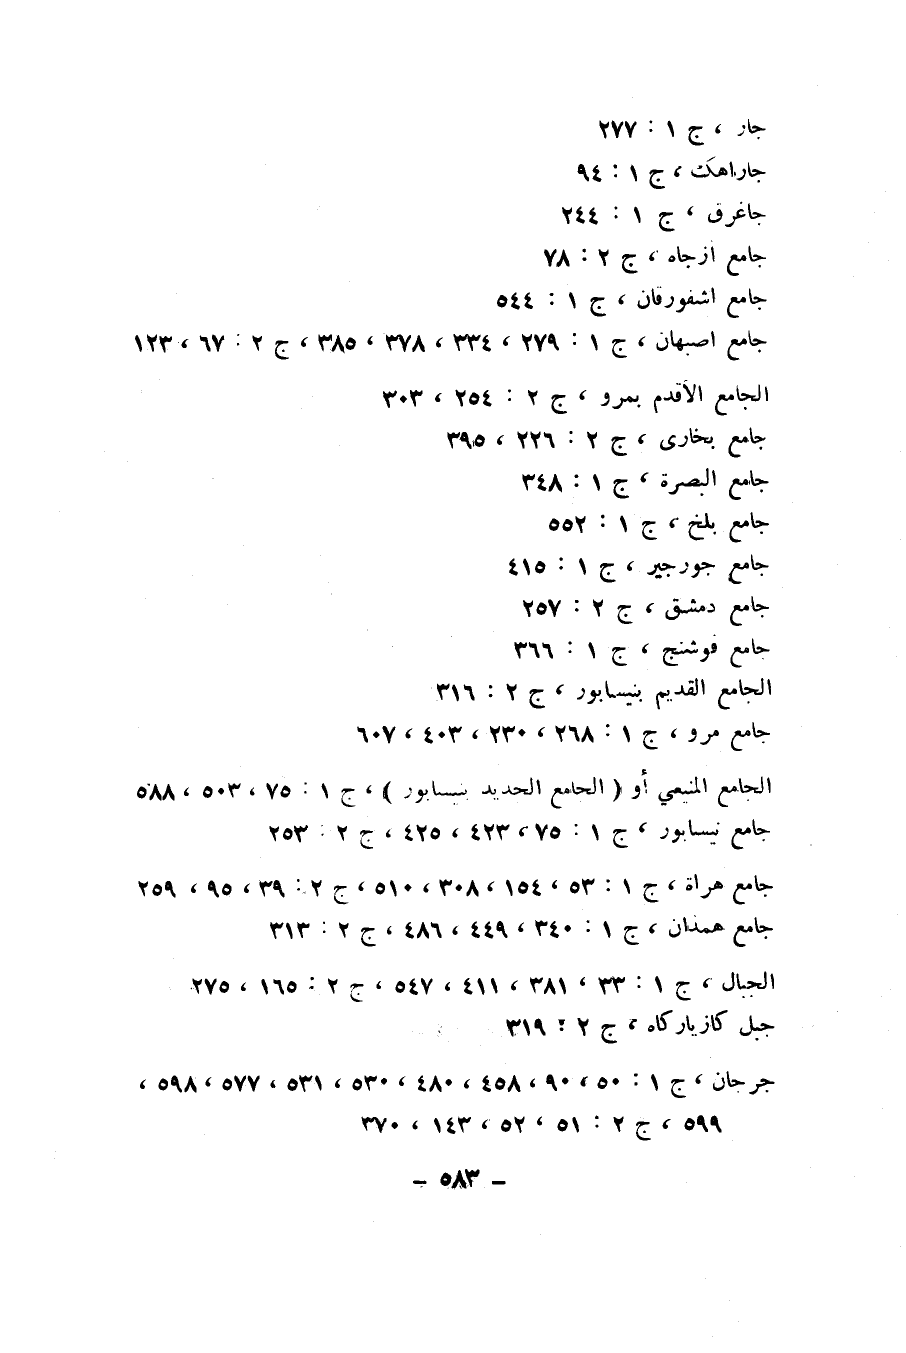 جار ، ج ١ : ٢٧٧
جاراهك ، ج ١ : ٩٤
جاغرق ، ج ١ : ٢٤٤
جامع ازجاه ، ج ٢ : ٧٨
جامع اشفورقان ، ج ١ : ٥٤٤
جامع اصبهان ، ج ١ : ٢٧٩ ، ٣٣٤ ، ٣٧٨ ، ٣٨٥ ، ج ٢ : ٦٧ ، ١٢٣
الجامع الأقدم بمرو ، ج ٢ : ٢٥٤ ، ٣٠٣
جامع بخارى ، ج ٢ : ٢٢٦ ، ٣٩٥
جامع البصرة ، ج ١ : ٣٤٨
جامع بلخ ، ج ١ : ٥٥٢
جامع جورجير ، ج ١ : ٤١٥
جامع دمشق ، ج ٢ : ٢٥٧
جامع فوشنج ، ج ١ : ٣٦٦
الجامع القديم بنيسابور ، ج ٢ : ٣١٦
جامع مرو ، ج ١ : ٢٦٨ ، ٢٣٠ ، ٤٠٣ ، ٦٠٧
الجامع المنيعي أو ( الجامع الجديد بنيسابور ) ، ج ١ : ٧٥ ، ٥٠٣ ، ٥٨٨
جامع نيسابور ، ج ١ : ٧٥ ، ٤٢٣ ، ٤٢٥ ، ج ٢ : ٢٥٣
جامع هراة ، ج ١ : ٥٣ ، ١٥٤ ، ٣٠٨ ، ٥١٠ ، ج ٢ : ٣٩ ، ٩٥ ، ٢٥٩
جامع همذان ، ج ١ : ٣٤٠ ، ٤٤٩ ، ٤٨٦ ، ج ٢ : ٣١٣
الجبال ، ج ١ : ٣٣ ، ٣٨١ ، ٤١١ ، ٥٤٧ ، ج ٢ : ١٦٥ ، ٢٧٥
جبل كازياركاه ، ج ٢ : ٣١٩
جرجان ، ج ١ : ٥٠ ، ٩٠ ، ٤٥٨ ، ٤٨٠ ، ٥٣٠ ، ٥٣١ ، ٥٧٧ ، ٥٩٨ ،
٥٩٩ ، ج ٢ : ٥١ ، ٥٢ ، ١٤٣ ، ٣٧٠
- ٥٨٣ -